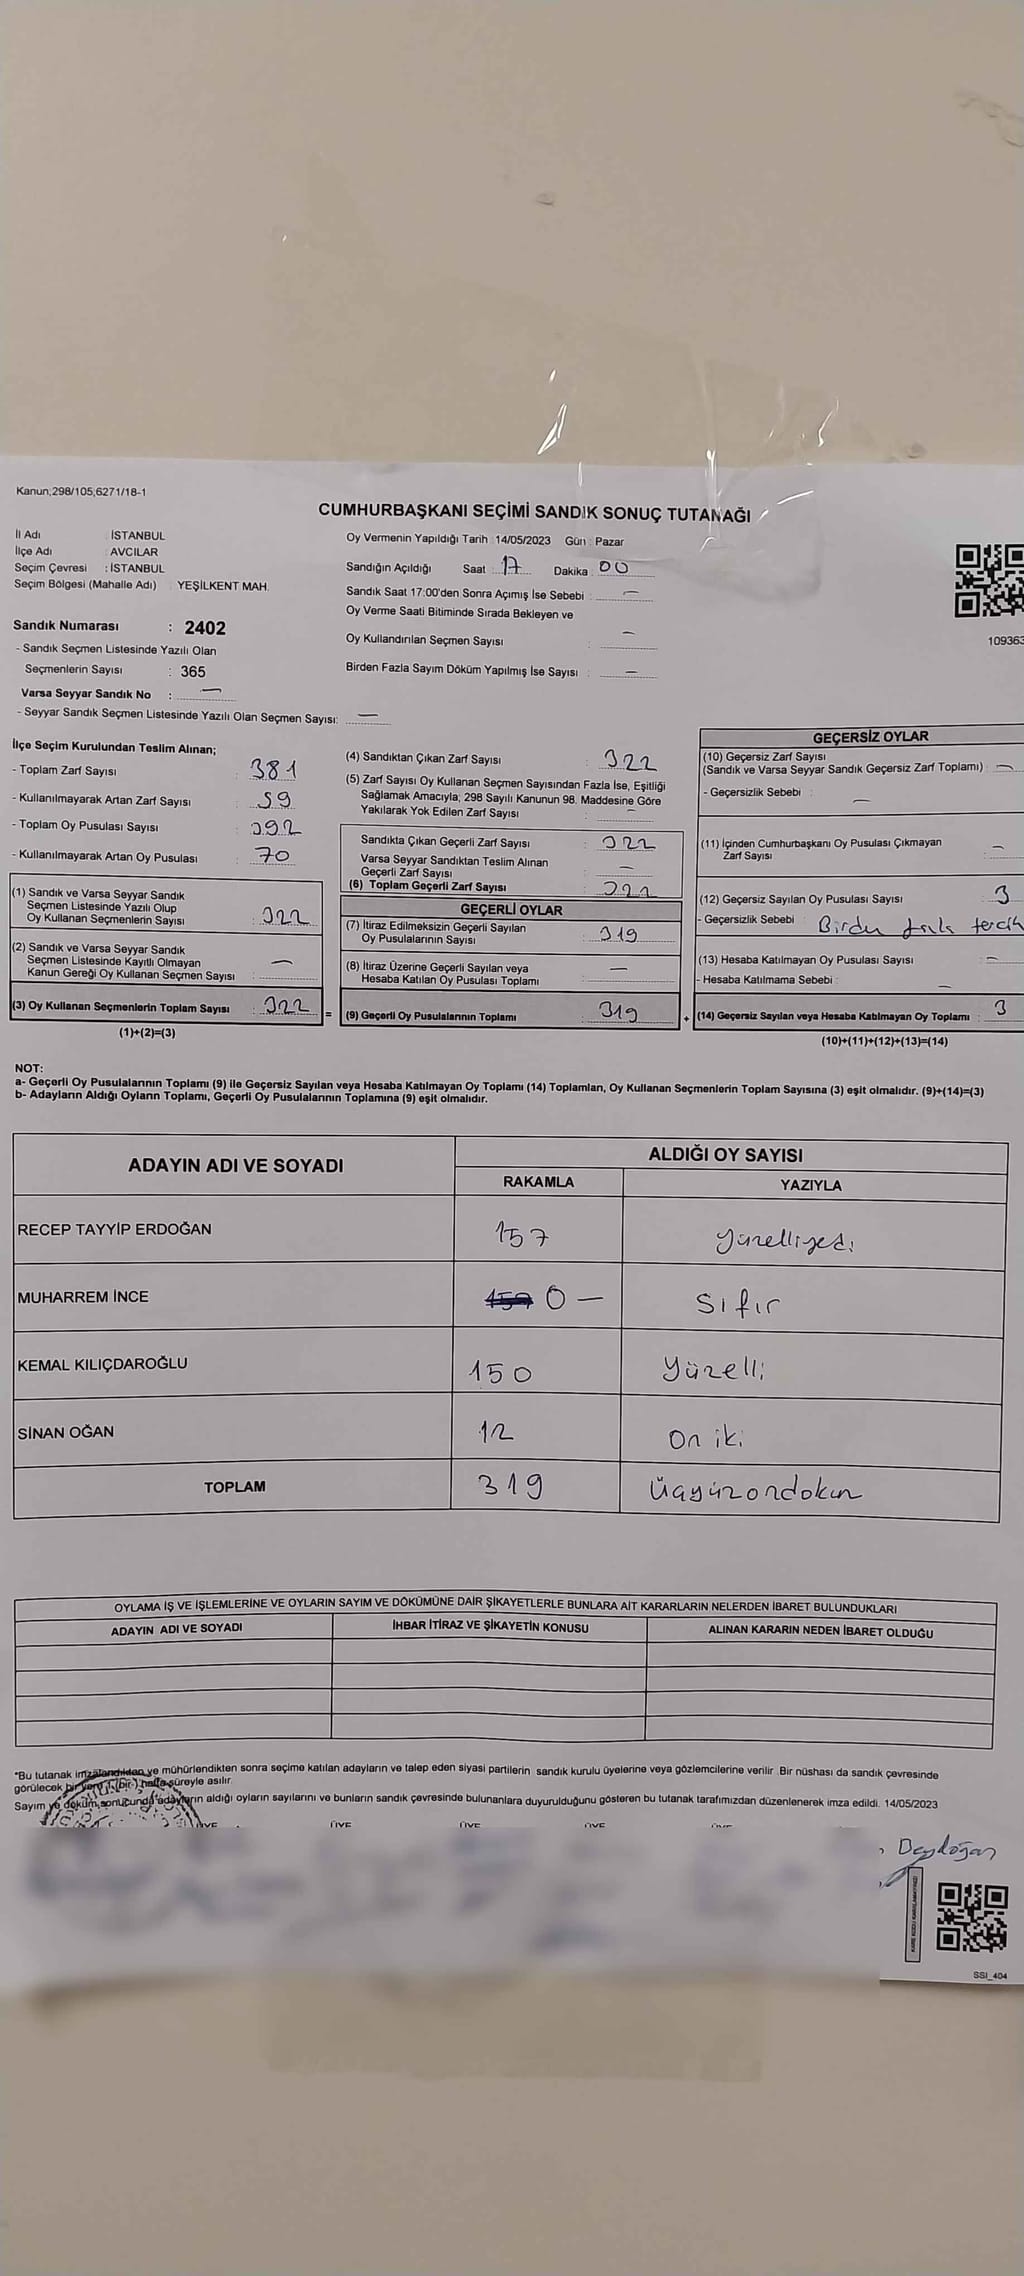 Kanun;298/105;6271/18-1
CUMHURBAŞKANI SEÇİMİ SANDIK SONUÇ TUTANAĞI
İl Adı : İSTANBUL
İlçe Adı : AVCILAR
Seçim Çevresi : İSTANBUL
Seçim Bölgesi (Mahalle Adı) : YEŞİLKENT MAH.
Sandık Numarası : 2402
- Sandık Seçmen Listesinde Yazılı Olan
Seçmenlerin Sayısı : 365
Varsa Seyyar Sandık No : —
- Seyyar Sandık Seçmen Listesinde Yazılı Olan Seçmen Sayısı: —
Oy Vermenin Yapıldığı Tarih : 14/05/2023 Gün : Pazar
Sandığın Açıldığı Saat : 17 Dakika : 00
Sandık Saat 17:00'den Sonra Açımış İse Sebebi : —
Oy Verme Saati Bitiminde Sırada Bekleyen ve
Oy Kullandırılan Seçmen Sayısı : —
Birden Fazla Sayım Döküm Yapılmış İse Sayısı : —
109363
İlçe Seçim Kurulundan Teslim Alınan;
- Toplam Zarf Sayısı : 381
- Kullanılmayarak Artan Zarf Sayısı : 59
- Toplam Oy Pusulası Sayısı : 392
- Kullanılmayarak Artan Oy Pusulası : 70
(1) Sandık ve Varsa Seyyar Sandık
Seçmen Listesinde Yazılı Olup
Oy Kullanan Seçmenlerin Sayısı : 322
(2) Sandık ve Varsa Seyyar Sandık
Seçmen Listesinde Kayıtlı Olmayan
Kanun Gereği Oy Kullanan Seçmen Sayısı : —
(3) Oy Kullanan Seçmenlerin Toplam Sayısı : 322
(1)+(2)=(3)
(4) Sandıktan Çıkan Zarf Sayısı : 322
(5) Zarf Sayısı Oy Kullanan Seçmen Sayısından Fazla İse, Eşitliği
Sağlamak Amacıyla; 298 Sayılı Kanunun 98. Maddesine Göre
Yakılarak Yok Edilen Zarf Sayısı : —
Sandıkta Çıkan Geçerli Zarf Sayısı : 322
Varsa Seyyar Sandıktan Teslim Alınan
Geçerli Zarf Sayısı : —
(6) Toplam Geçerli Zarf Sayısı : 322
GEÇERLİ OYLAR
(7) İtiraz Edilmeksizin Geçerli Sayılan
Oy Pusulalarının Sayısı : 319
(8) İtiraz Üzerine Geçerli Sayılan veya
Hesaba Katılan Oy Pusulası Toplamı : —
= (9) Geçerli Oy Pusulalarının Toplamı : 319
GEÇERSİZ OYLAR
(10) Geçersiz Zarf Sayısı
(Sandık ve Varsa Seyyar Sandık Geçersiz Zarf Toplamı) : —
- Geçersizlik Sebebi : —
(11) İçinden Cumhurbaşkanı Oy Pusulası Çıkmayan
Zarf Sayısı : —
(12) Geçersiz Sayılan Oy Pusulası Sayısı : 3
- Geçersizlik Sebebi : Birden fazla tercih
(13) Hesaba Katılmayan Oy Pusulası Sayısı : —
- Hesaba Katılmama Sebebi : —
+ (14) Geçersiz Sayılan veya Hesaba Katılmayan Oy Toplamı : 3
(10)+(11)+(12)+(13)=(14)
NOT:
a- Geçerli Oy Pusulalarının Toplamı (9) ile Geçersiz Sayılan veya Hesaba Katılmayan Oy Toplamı (14) Toplamları, Oy Kullanan Seçmenlerin Toplam Sayısına (3) eşit olmalıdır. (9)+(14)=(3)
b- Adayların Aldığı Oyların Toplamı, Geçerli Oy Pusulalarının Toplamına (9) eşit olmalıdır.
ADAYIN ADI VE SOYADI ALDIĞI OY SAYISI
RAKAMLA YAZIYLA
RECEP TAYYİP ERDOĞAN 157 yüzelliyedi
MUHARREM İNCE 0 — Sıfır
KEMAL KILIÇDAROĞLU 150 Yüzelli
SİNAN OĞAN 12 On iki
TOPLAM 319 Üçyüzondokuz
OYLAMA İŞ VE İŞLEMLERİNE VE OYLARIN SAYIM VE DÖKÜMÜNE DAİR ŞİKAYETLERLE BUNLARA AİT KARARLARIN NELERDEN İBARET BULUNDUKLARI
ADAYIN ADI VE SOYADI İHBAR İTİRAZ VE ŞİKAYETİN KONUSU ALINAN KARARIN NEDEN İBARET OLDUĞU
*Bu tutanak imzalandıktan ve mühürlendikten sonra seçime katılan adayların ve talep eden siyasi partilerin sandık kurulu üyelerine veya gözlemcilerine verilir. Bir nüshası da sandık çevresinde
görülecek bir yere 1 (bir) hafta süreyle asılır.
Sayım ve döküm sonucunda adayların aldığı oyların sayılarını ve bunların sandık çevresinde bulunanlara duyurulduğunu gösteren bu tutanak tarafımızdan düzenlenerek imza edildi. 14/05/2023
ÜYE ÜYE ÜYE ÜYE
SSI_404